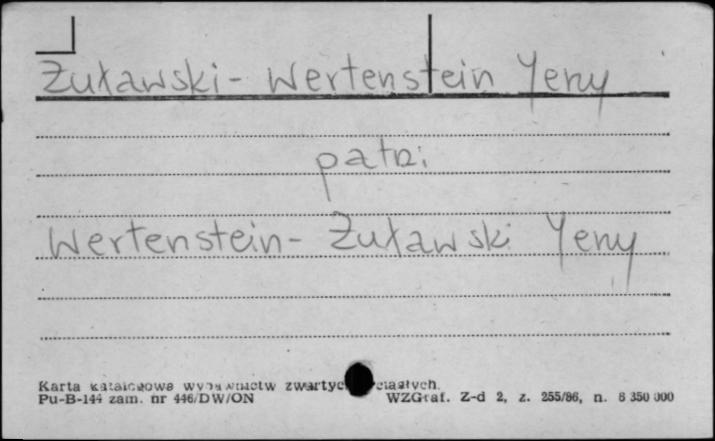 Żuławski - Wertenstein Jerzy
patrz:
Wertenstein - Żuławski Jerzy
Karta katalogowa wydawnictw zwartych ciągłych.
Pu-B-144 zam. nr 446/DW/ON WZGraf. Z-d 2, z. 255/86, n. 8 350 000